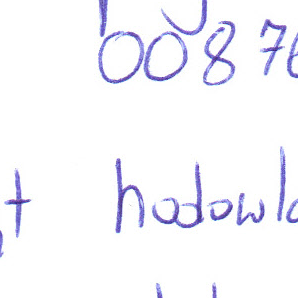 008 76
t hodowla